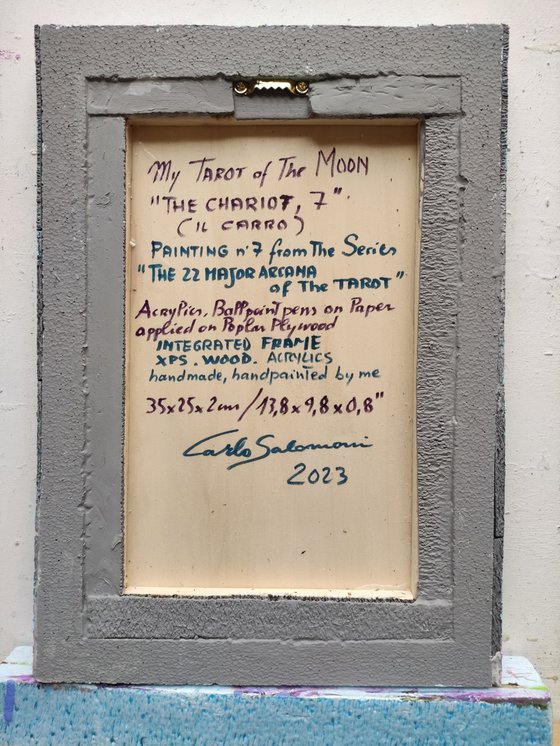 My TAROT of The MOON
"THE CHARIOT, 7"
(IL CARRO)
PAINTING n°7 from The Series
"THE 22 MAJOR ARCANA
of The TAROT"
Acrylics, Ballpoint pens on Paper
applied on Poplar Plywood
INTEGRATED FRAME
XPS. WOOD. ACRYLICS
handmade, handpainted by me
35x25x2cm/13,8x9,8x0,8"
Carlo Salomoni
2023